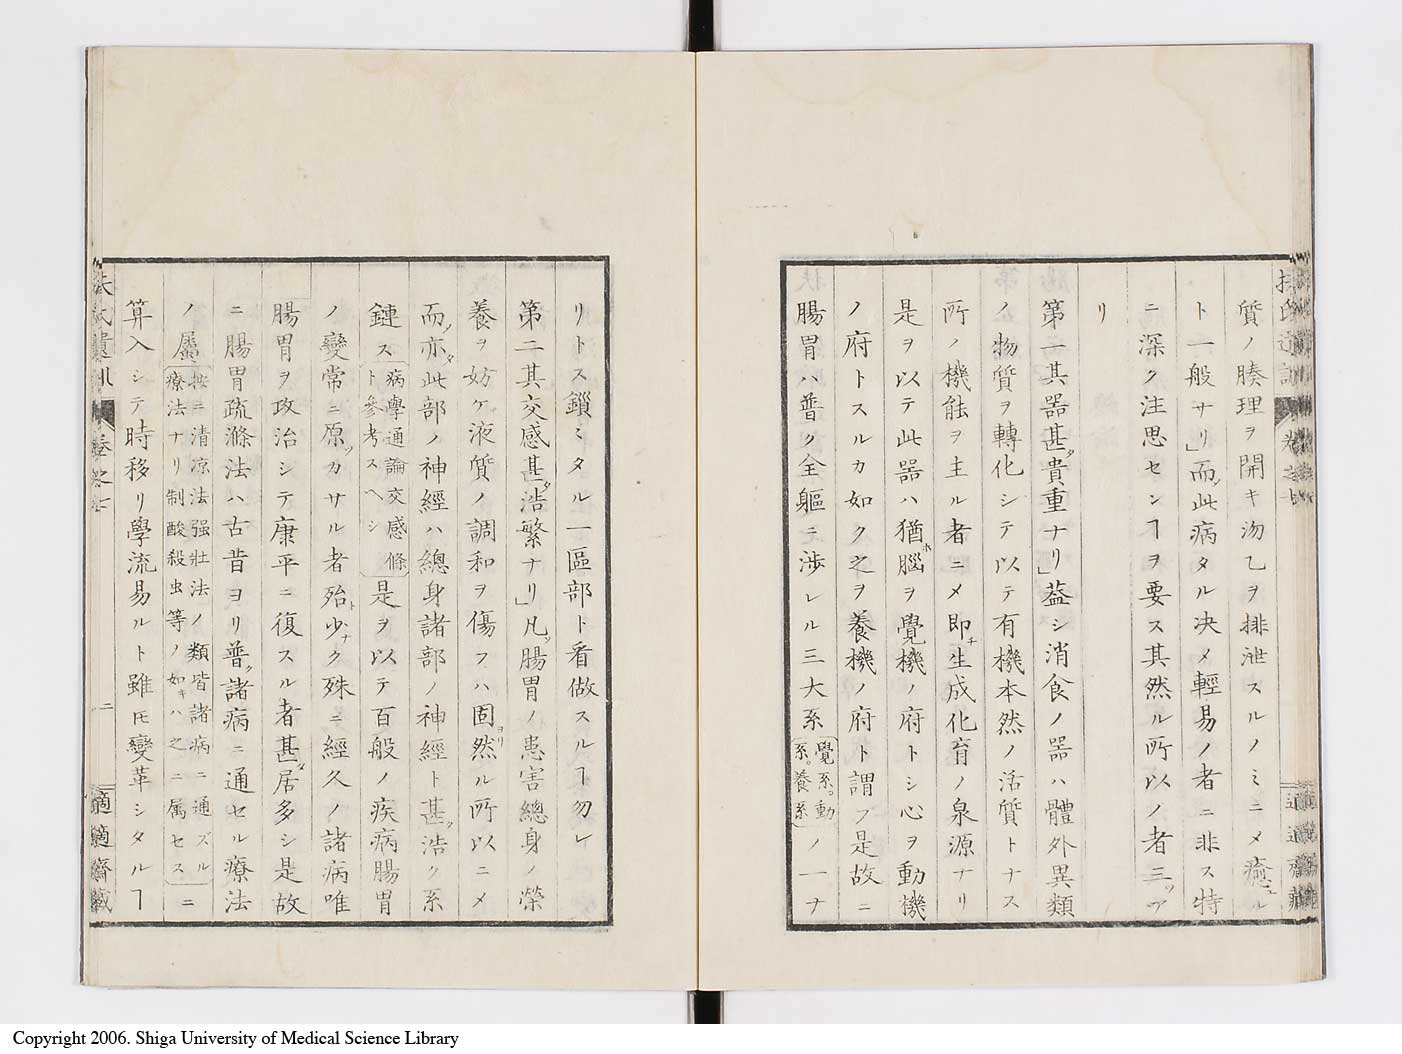 質ノ腠理ヲ開キ汤乙ヲ排泄スルノミニメ癒ヱル
ト一般サリ」而ノ此病タル决メ輕易ノ者ニ非ス特
ニ深ク注思センヿヲ要ス其然ル所以ノ者三ツア
リ
第一其器甚タ貴重ナリ」葢シ消食ノ器ハ體外異類
ノ物質ヲ轉化シテ以テ有機本然ノ活質トナス
所ノ機能ヲ主ル者ニメ即チ生成化育ノ泉源ナリ
是ヲ以テ此器ハ猶ホ腦ヲ覺機ノ府トシ心ヲ動機
ノ府トスルカ如ク之ヲ養機ノ府ト謂フ是故ニ
腸胃ハ普ク全軀ニ渉レル三大系
覺系。動
系。養系
ノ一ナ
扶氏遺訓 卷之七
リトス鎻ミタル一區部ト看做スルヿ勿レ
第二其交感甚タ浩繁ナリ」凡ソ腸胃ノ患害總身ノ榮
養ヲ妨ケ液質ノ調和ヲ傷フハ固ヨリ然ル所以ニメ
而ノ亦タ此部ノ神經ハ總身諸部ノ神經ト甚タ浩ク系
鏈ス
病學通論交感條
ト參考スヘシ
是ヲ以テ百般ノ疾病腸胃
ノ變常ニ原ツカサル者殆ト少ナク殊ニ經久ノ諸病唯
腸胃ヲ政治シテ康平ニ復スル者甚タ居多シ是故
ニ腸胃疏滌法ハ古昔ヨリ普ク諸病ニ通セル療法
ノ屬
按ニ清凉法强壯法ノ類皆諸病ニ通ズル
療法ナリ制酸殺虫等ノ如キハ之ニ属セス
ニ
算入シテ時移リ學流易ルト雖𪜈變革シタルヿ
扶氏遺訓 卷之七 二 適適齋藏